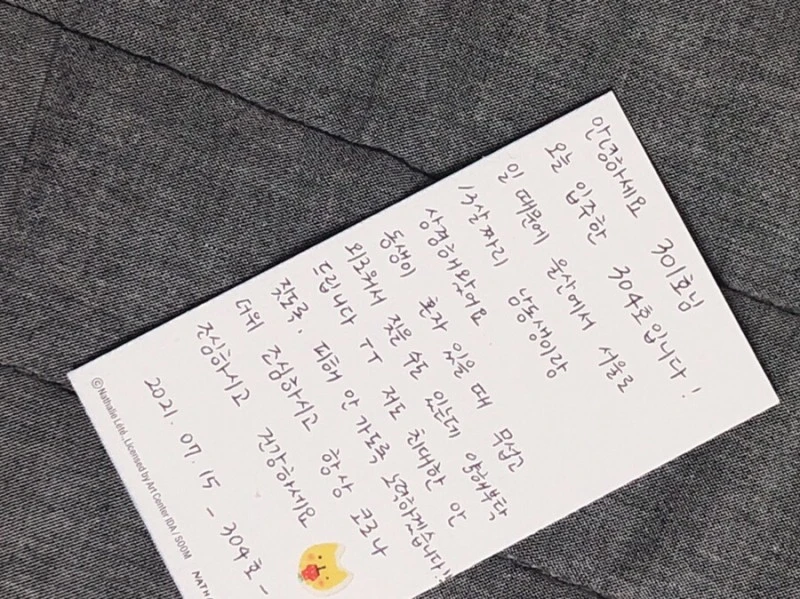 안녕하세요 301호님
오늘 입주한 304호입니다!
일 때문에 울산에서 서울로
13살짜리 남동생이랑
상경해왔어요
동생이 혼자 있을 때 무섭고
외로워서 짖을 수도 있는데 양해부탁
드립니다 ㅜㅜ 저도 최대한 안
짖도록, 피해 안 가도록 노력하겠습니다!
더위 조심하시고 항상 코로나
조심하시고 건강하세요
2021. 07. 15 - 304호 -
© Nathalie Lété, Licensed by Art Center IDA / SOOM